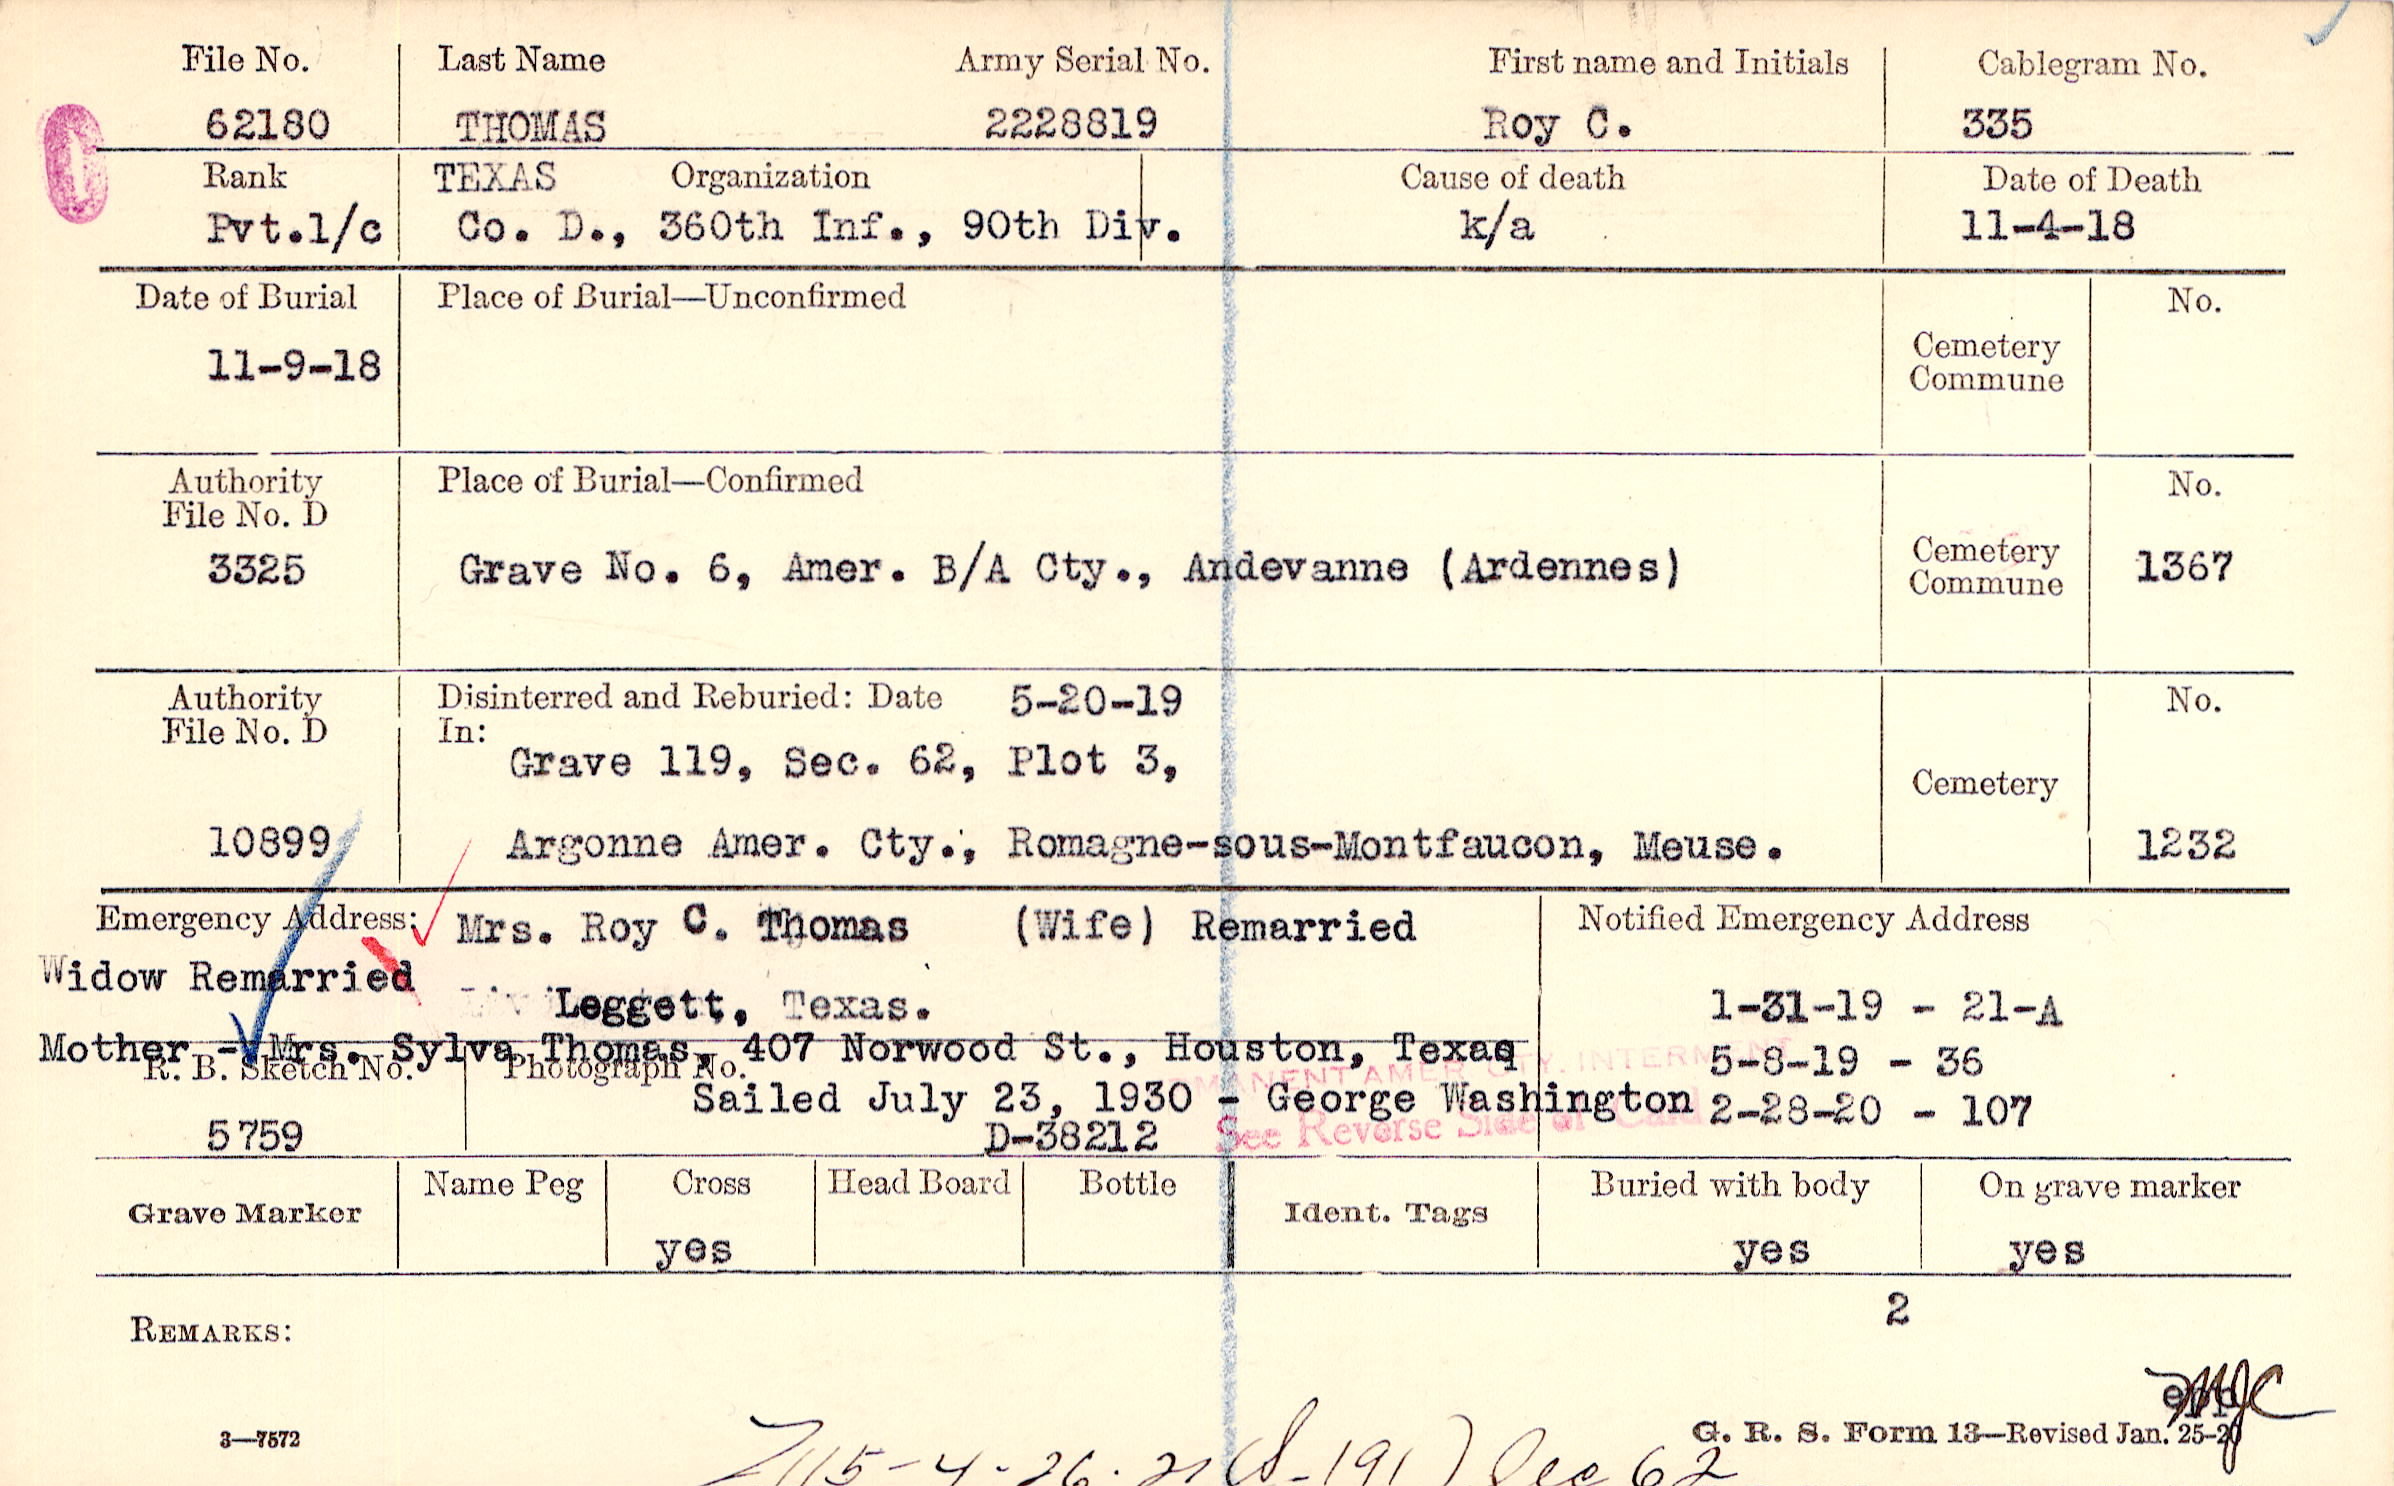 File No. Last Name Army Serial No. First name and Initials Cablegram No.
62180 THOMAS 2228819 Roy C. 335
Rank TEXAS Organization Cause of death Date of Death
Pvt.1/c Co. D., 360th Inf., 90th Div. k/a 11-4-18
Date of Burial Place of Burial—Unconfirmed No.
11-9-18 Cemetery
Commune
Authority Place of Burial—Confirmed No.
File No. D
3325 Grave No. 6, Amer. B/A Cty., Andevanne (Ardennes) Cemetery 1367
Commune
Authority Disinterred and Reburied: Date 5-20-19 No.
File No. D In:
Grave 119, Sec. 62, Plot 3, Cemetery
10899 Argonne Amer. Cty., Romagne-sous-Montfaucon, Meuse. 1232
Emergency Address: Mrs. Roy C. Thomas (Wife) Remarried Notified Emergency Address
Widow Remarried
Leggett, Texas. 1-31-19 - 21-A
Mother - Mrs. Sylva Thomas, 407 Norwood St., Houston, Texas 5-8-19 - 36
R. B. Sketch No. Photograph No. AMER CTY. INTERMENT
Sailed July 23, 1930 - George Washington 2-28-20 - 107
5759 D-38212 See Reverse Side of Card
Grave Marker Name Peg Cross Head Board Bottle Ident. Tags Buried with body On grave marker
yes yes yes
2
REMARKS:
MJC
3—7572 G. R. S. Form 13—Revised Jan. 25-20
115-4-26-21 (S-191) Sec 62